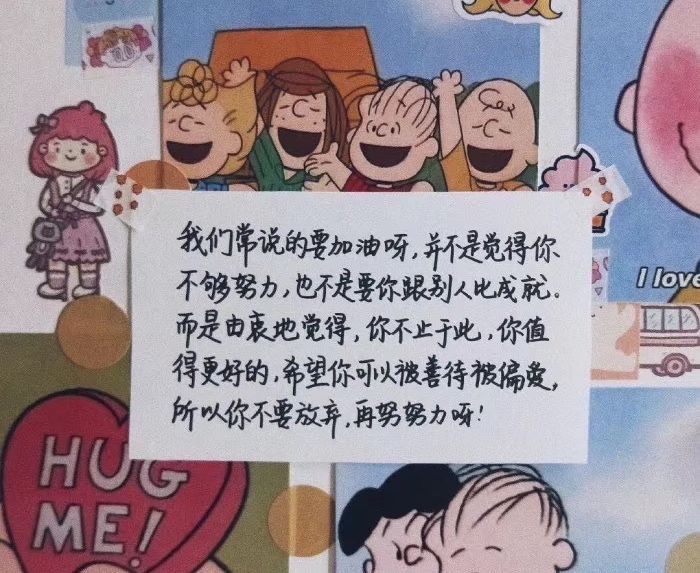 我们常说的要加油呀，并不是觉得你
不够努力，也不是要你跟别人比成就。
而是由衷地觉得，你不止于此，你值
得更好的，希望你可以被善待被偏爱，
所以你不要放弃，再努努力呀！
I love
HUG
ME!